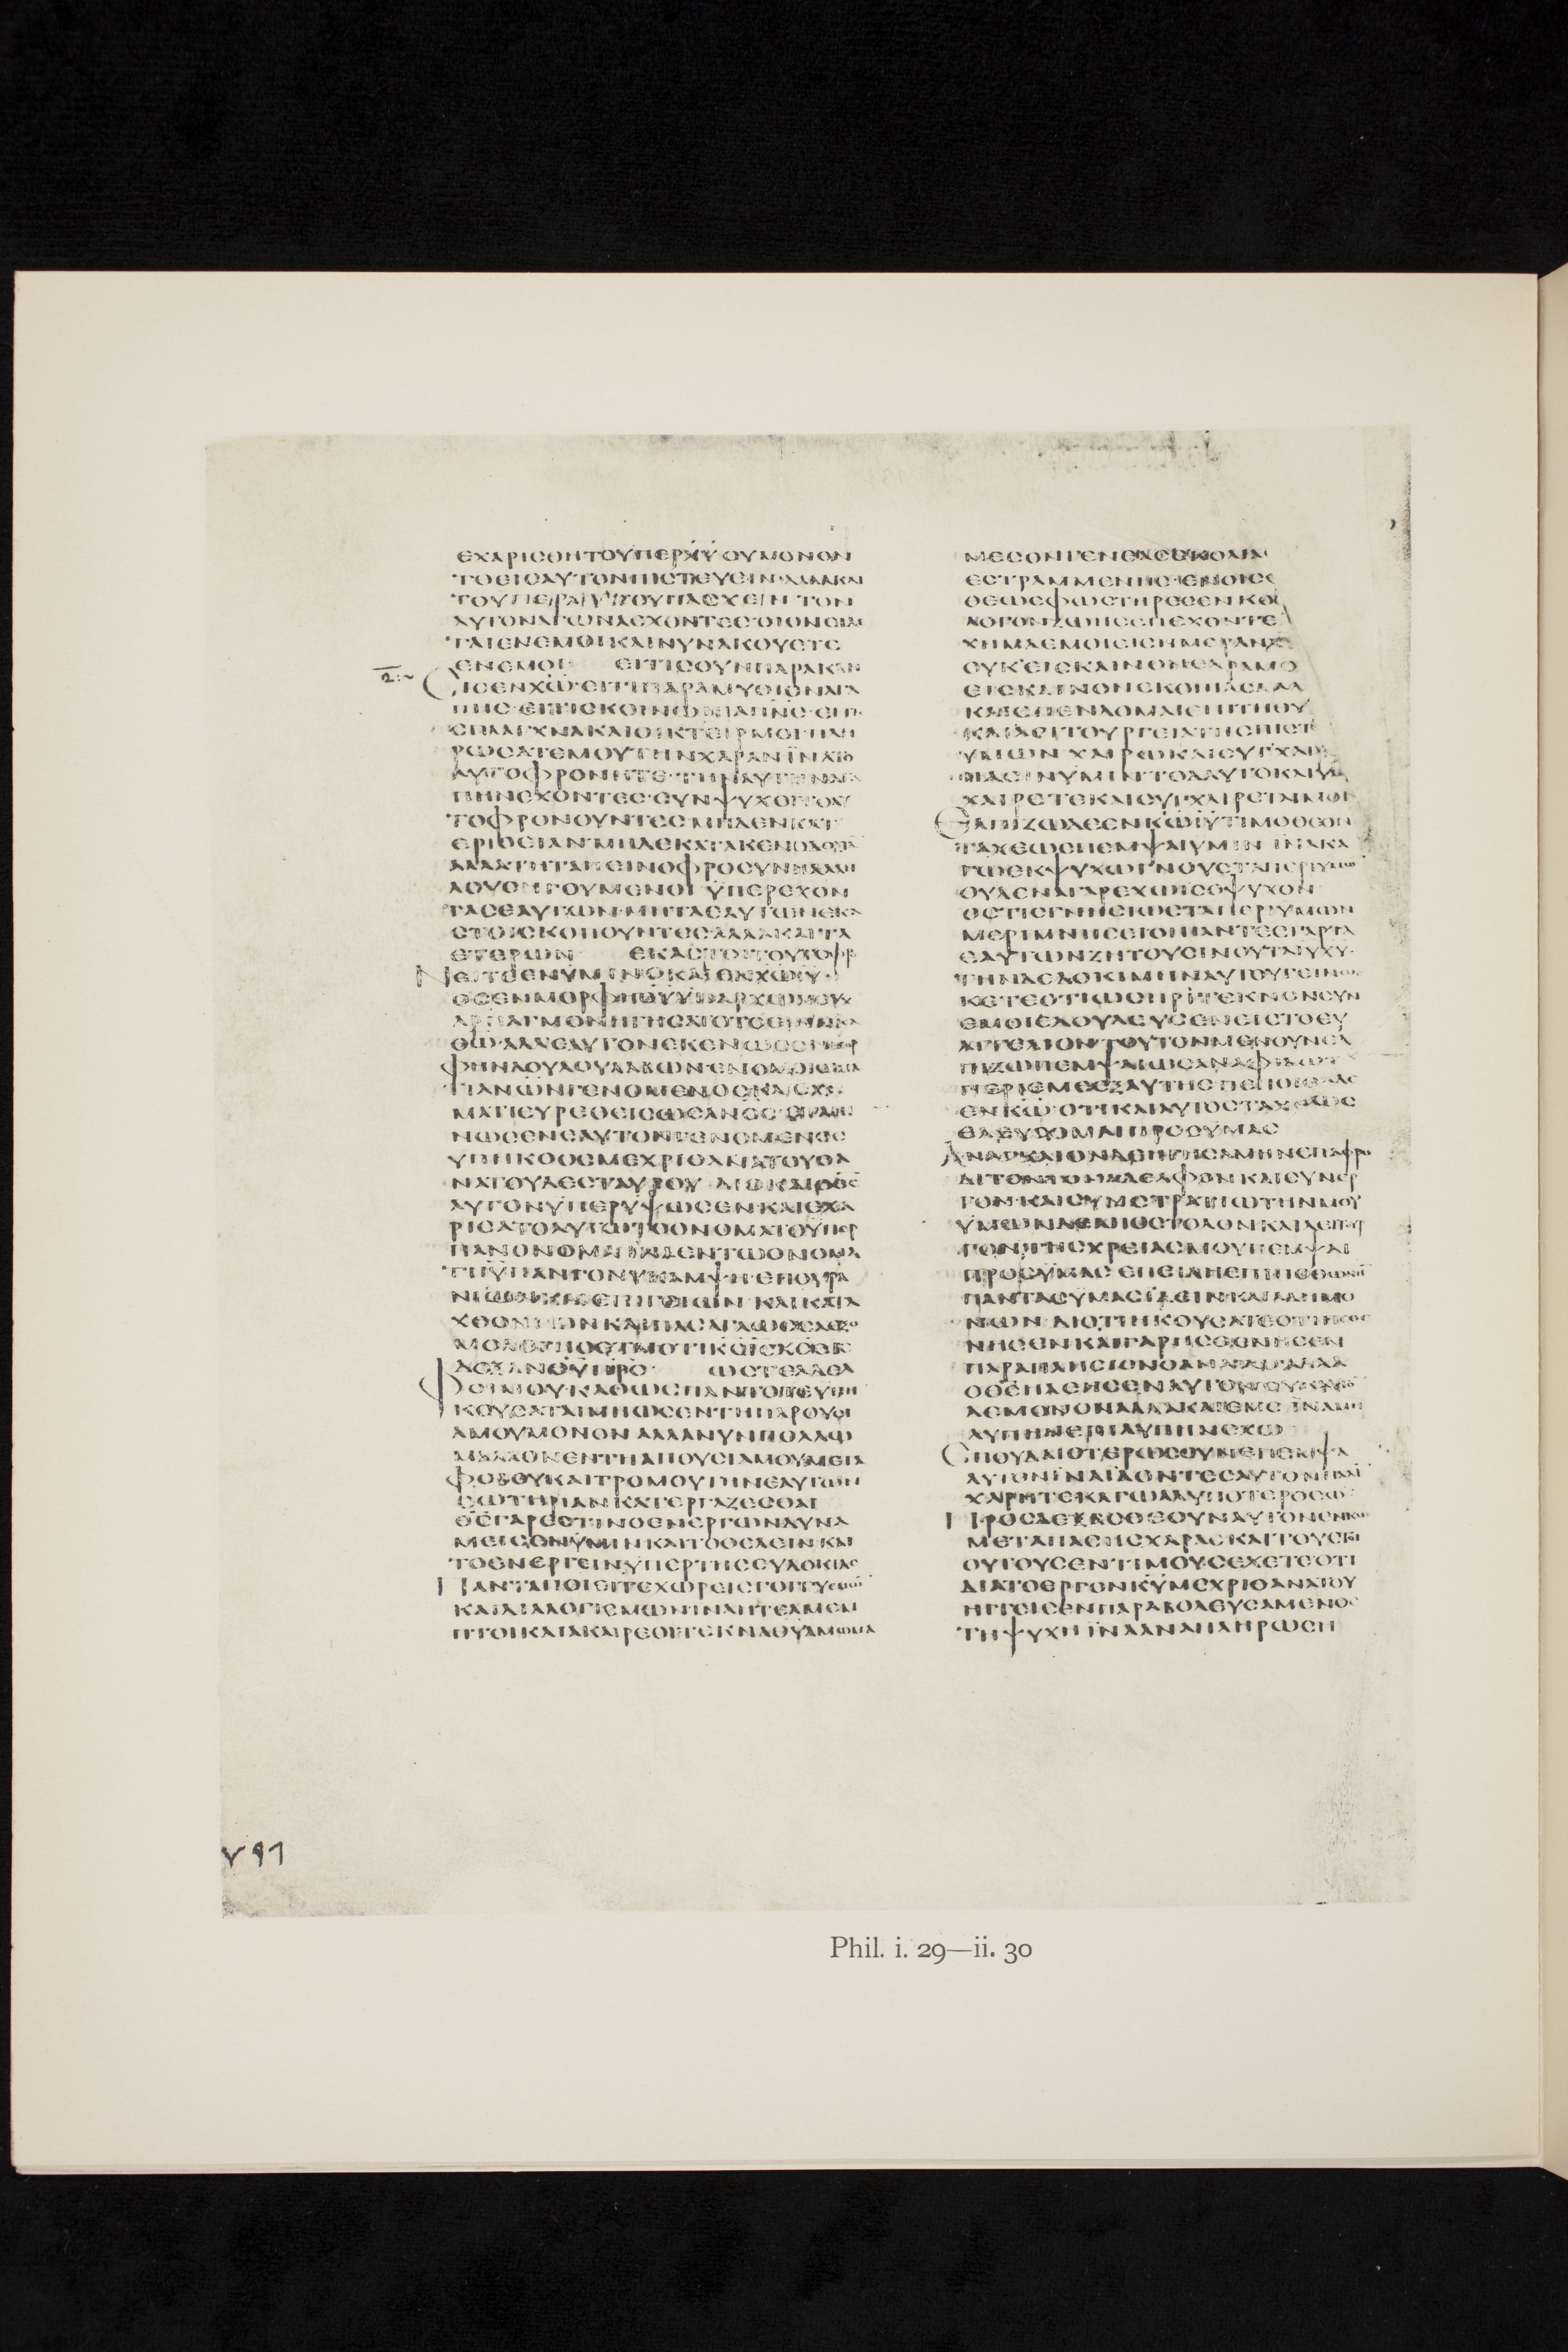 ΕΧΑΡΙϹΘΗΤΟΥΠΕΡΧΥ ΟΥΜΟΝΟΝ
ΤΟΕΙϹΑΥΤΟΝΠΙϹΤΕΥΕΙΝ·ΑΛΛΑΚΑΙ
ΤΟΥΠΕΡΑΥΤΟΥΠΑϹΧΕΙΝ ΤΟΝ
ΑΥΤΟΝΑΓΩΝΑΕΧΟΝΤΕϹ·ΟΙΟΝΕΙΔΕ
ΤΑΙΕΝΕΜΟΙΚΑΙΝΥΝΑΚΟΥΕΤΕ
ΕΝΕΜΟΙ ΕΙΤΙϹΟΥΝΠΑΡΑΚΛΗ
ϹΙϹΕΝΧΩ·ΕΙΤΙΠΑΡΑΜΥΘΙΟΝΑΓΑ
ΠΗϹ·ΕΙΤΙϹΚΟΙΝΩΝΙΑΠΝϹ·ΕΙΤΙ
ϹΠΛΑΓΧΝΑΚΑΙΟΙΚΤΕΙΡΜΟΙΠΛΗ
ΡΩϹΑΤΕΜΟΥΤΗΝΧΑΡΑΝΪΝΑΤΟ
ΑΥΤΟΦΡΟΝΗΤΕ·ΤΗΝΑΥΤΗΝΑΓΑ
ΠΗΝΕΧΟΝΤΕϹ·ϹΥΝΨΥΧΟΙΤΟΑΥ
ΤΟΦΡΟΝΟΥΝΤΕϹ ΜΗΔΕΝΚΑΤ
ΕΡΙΘΕΙΑΝ·ΜΗΔΕΚΑΤΑΚΕΝΟΔΟΞΙΑ
ΑΛΛΑΤΗΤΑΠΕΙΝΟΦΡΟϹΥΝΗΑΛΛΗ
ΛΟΥϹΗΓΟΥΜΕΝΟΙ ΫΠΕΡΕΧΟΝ
ΤΑϹΕΑΥΤΩΝ·ΜΗΤΑΕΑΥΤΩΝΕΚΑ
ϹΤΟΙϹΚΟΠΟΥΝΤΕϹΑΛΛΑΚΑΙΤΑ
ΕΤΕΡΩΝ ΕΚΑϹΤΟΙΤΟΥΤΟΦΡ
ΝΕΙΤΕΕΝΥΜΙΝΟΚΑΙΕΝΧΩΙΥ·
ΟϹΕΝΜΟΡΦΗΘΥΫΠΑΡΧΩΝΟΥΧ
ΑΡΠΑΓΜΟΝΗΓΗϹΑΤΟΤΟΕΙΝΑΙΙϹΑ
ΘΩ·ΑΛΛΑΕΑΥΤΟΝΕΚΕΝΩϹΕΝΜΟΡ
ΦΗΝΔΟΥΛΟΥΛΑΒΩΝ·ΕΝΟΜΟΙΩΜΑ
ΤΙΑΝΩΝΓΕΝΟΜΕΝΟϹΚΑΙϹΧΗ
ΜΑΤΙΕΥΡΕΘΕΙϹΩϹΑΝΟϹ·ΕΤΑΠΙ
ΝΩϹΕΝΕΑΥΤΟΝΓΕΝΟΜΕΝΟϹ
ΥΠΗΚΟΟϹΜΕΧΡΙΘΑΝΑΤΟΥΘΑ
ΝΑΤΟΥΔΕϹΤΑΥΡΟΥ ΔΙΟΚΑΙΟΘϹ
ΑΥΤΟΝΥΠΕΡΥΨΩϹΕΝΚΑΙΕΧΑ
ΡΙϹΑΤΟΑΥΤΩΤΟΟΝΟΜΑΤΟΥΠΕΡ
ΠΑΝΟΝΟΜΑΪΝΑΕΝΤΩΟΝΟΜΑ
ΤΙΙΥΠΑΝΓΟΝΥΚΑΜΨΗ·ΕΠΟΥΡΑ
ΝΙΩΝΚΑΙΕΠΙΓΕΙΩΝ ΚΑΙΚΑΤΑ
ΧΘΟΝΙΩΝΚΑΙΠΑϹΑΓΛΩϹϹΑΕΞΟ
ΜΟΛΟΓΗϹΕΤΑΙΟΤΙΚϹΙϹΧϹΕΙϹ
ΔΟΞΑΝΘΥΠΡϹ ΩϹΤΕΑΔΕΛ
ΦΟΙΜΟΥΚΑΘΩϹΠΑΝΤΟΤΕΥΠΗ
ΚΟΥϹΑΤΑΙΜΗΩϹΕΝΤΗΠΑΡΟΥϹΙ
ΑΜΟΥΜΟΝΟΝ ΑΛΛΑΝΥΝΠΟΛΛΩ
ΜΑΛΛΟΝΕΝΤΗΑΠΟΥϹΙΑΜΟΥΜΕΤΑ
ΦΟΒΟΥΚΑΙΤΡΟΜΟΥΤΗΝΕΑΥΤΩΝ
ϹΩΤΗΡΙΑΝΚΑΤΕΡΓΑΖΕϹΘΑΙ
ΘϹΓΑΡΕϹΤΙΝΟΕΝΕΡΓΩΝΔΥΝΑ
ΜΕΙϹΕΝΥΜΙΝΚΑΙΤΟΘΕΛΕΙΝΚΑΙ
ΤΟΕΝΕΡΓΕΙΝΥΠΕΡΤΗϹΕΥΔΟΚΙΑϹ
ΠΑΝΤΑΠΟΙΕΙΤΕΧΩΡΕΙϹΓΟΓΓΥϹΜΩ
ΚΑΙΔΙΑΛΟΓΙϹΜΩΝΙΝΑΗΤΕΑΜΕΜ
ΠΤΟΙΚΑΙΑΚΑΙΡΕΟΙΤΕΚΝΑΘΥΑΜΩΜΑ
ΜΕϹΟΝΓΕΝΕΑϹϹΚΟΛΙΑ
ΕϹΤΡΑΜΜΕΝΗϹ·ΕΝΟΙϹ
ΘΕΩϹΦΩϹΤΗΡΕϹΕΝΚΟ
ΛΟΓΟΝΖΩΗϹΕΠΕΧΟΝΤΕ
ΧΗΜΑΕΜΟΙΕΙϹΗΜΕΡΑΝΧ
ΟΥΚΕΙϹΚΑΙΝΟΝΕΔΡΑΜΟ
ΕΙϹΚΑΙΝΟΝΕΚΟΠΙΑϹΑΑΛ
ΚΑΙϹΠΕΝΔΟΜΑΙΕΠΙΤΗΘΥ
ΚΑΙΛΕΙΤΟΥΡΓΕΙΑΤΗϹΠΙϹΤ
ΥΜΩΝ ΧΑΙΡΩΚΑΙϹΥΓΧΑΙΡ
ΠΑϹΙΝΥΜΙΝ ΤΟΔΑΥΤΟΚΑΙΥΜ
ΧΑΙΡΕΤΕΚΑΙϹΥΓΧΑΙΡΕΤΑΙΜΟΙ
ΕΛΠΙΖΩΔΕΕΝΚΩΙΥΤΙΜΟΘΕΟΝ
ΤΑΧΕΩϹΠΕΜΨΑΙΥΜΙΝ ΙΝΑΚΑ
ΓΩΕΥΨΥΧΩΓΝΟΥϹΤΑΠΕΡΙΥΜΩ
ΟΥΔΕΝΑΓΑΡΕΧΩΙϹΟΨΥΧΟΝ
ΟϹΤΙϹΓΝΗϹΙΩϹΤΑΠΕΡΙΥΜΩΝ
ΜΕΡΙΜΝΗϹΕΙΟΙΠΑΝΤΕϹΓΑΡΤΑ
ΕΑΥΤΩΝΖΗΤΟΥϹΙΝΟΥΤΑΙΥΧΥ·
ΤΗΝΔΕΔΟΚΙΜΗΝΑΥΤΟΥΓΕΙΝΩϹ
ΚΕΤΕΟΤΙΩϹΠΡΙΤΕΚΝΟΝϹΥΝ
ΕΜΟΙΕΔΟΥΛΕΥϹΕΝΕΙϹΤΟΕΥ
ΑΓΓΕΛΙΟΝ·ΤΟΥΤΟΝΜΕΝΟΥΝΕΛ
ΠΙΖΩΠΕΜΨΑΙΩϹΑΝΑΦΙΔΩΤΑ
ΠΕΡΙΕΜΕΕΞΑΥΤΗϹΠΕΠΟΙΘΑΔΕ
ΕΝΚΩ·ΟΤΙΚΑΙΑΥΤΟϹΤΑΧΕΩϹ
ΕΛΕΥϹΟΜΑΙΠΡΟϹΥΜΑϹ
ΑΝΑΓΚΑΙΟΝΔΕΗΓΗϹΑΜΗΝΕΠΑΦΡΟ
ΔΙΤΟΝΤΟΝΑΔΕΛΦΟΝΚΑΙϹΥΝΕΡ
ΓΟΝ·ΚΑΙϹΥΜϹΤΡΑΤΙΩΤΗΝΜΟΥ
ΥΜΩΝΔΕΑΠΟϹΤΟΛΟΝΚΑΙΛΕΙΤΟΥΡ
ΓΟΝΤΗϹΧΡΕΙΑϹΜΟΥΠΕΜΨΑΙ
ΠΡΟϹΥΜΑϹ ΕΠΕΙΔΗΕΠΙΠΟΘΩΝΗ
ΠΑΝΤΑϹΥΜΑϹΙΔΕΙΝ·ΚΑΙΑΔΗΜΟ
ΝΩΝ ΔΙΟΤΙΗΚΟΥϹΑΤΕΟΤΙΗϹΘΕ
ΝΗϹΕΝΚΑΙΓΑΡΗϹΘΕΝΗϹΕΝ
ΠΑΡΑΠΛΗϹΙΟΝΘΑΝΑΤΟΥΑΛΛΑ
ΟΘϹΗΛΕΗϹΕΝΑΥΤΟΝΟΥΚΑΥΤΟ
ΔΕΜΟΝΟΝΑΛΛΑΚΑΙΕΜΕ ΪΝΑΜΗ
ΛΥΠΗΝΕΠΙΛΥΠΗΝϹΧΩ
ϹΠΟΥΔΑΙΟΤΕΡΩϹΟΥΝΕΠΕΜΨΑ
ΑΥΤΟΝΙΝΑΪΔΟΝΤΕϹΑΥΤΟΝΠΑΛΙ
ΧΑΡΗΤΕΚΑΓΩΑΛΥΠΟΤΕΡΟϹΩ
ΠΡΟϹΔΕΧΕϹΘΕΟΥΝΑΥΤΟΝΕΝΚΩ
ΜΕΤΑΠΑϹΗϹΧΑΡΑϹΚΑΙΤΟΥϹΤΟΙ
ΟΥΤΟΥϹΕΝΤΙΜΟΥϹΕΧΕΤΕΟΤΙ
ΔΙΑΤΟΕΡΓΟΝΚΥΜΕΧΡΙΘΑΝΑΤΟΥ
ΗΓΓΕΙϹΕΝΠΑΡΑΒΟΛΕΥϹΑΜΕΝΟϹ
ΤΗΨΥΧΗ ΪΝΑΑΝΑΠΛΗΡΩϹΗ
Phil. i. 29—ii. 30